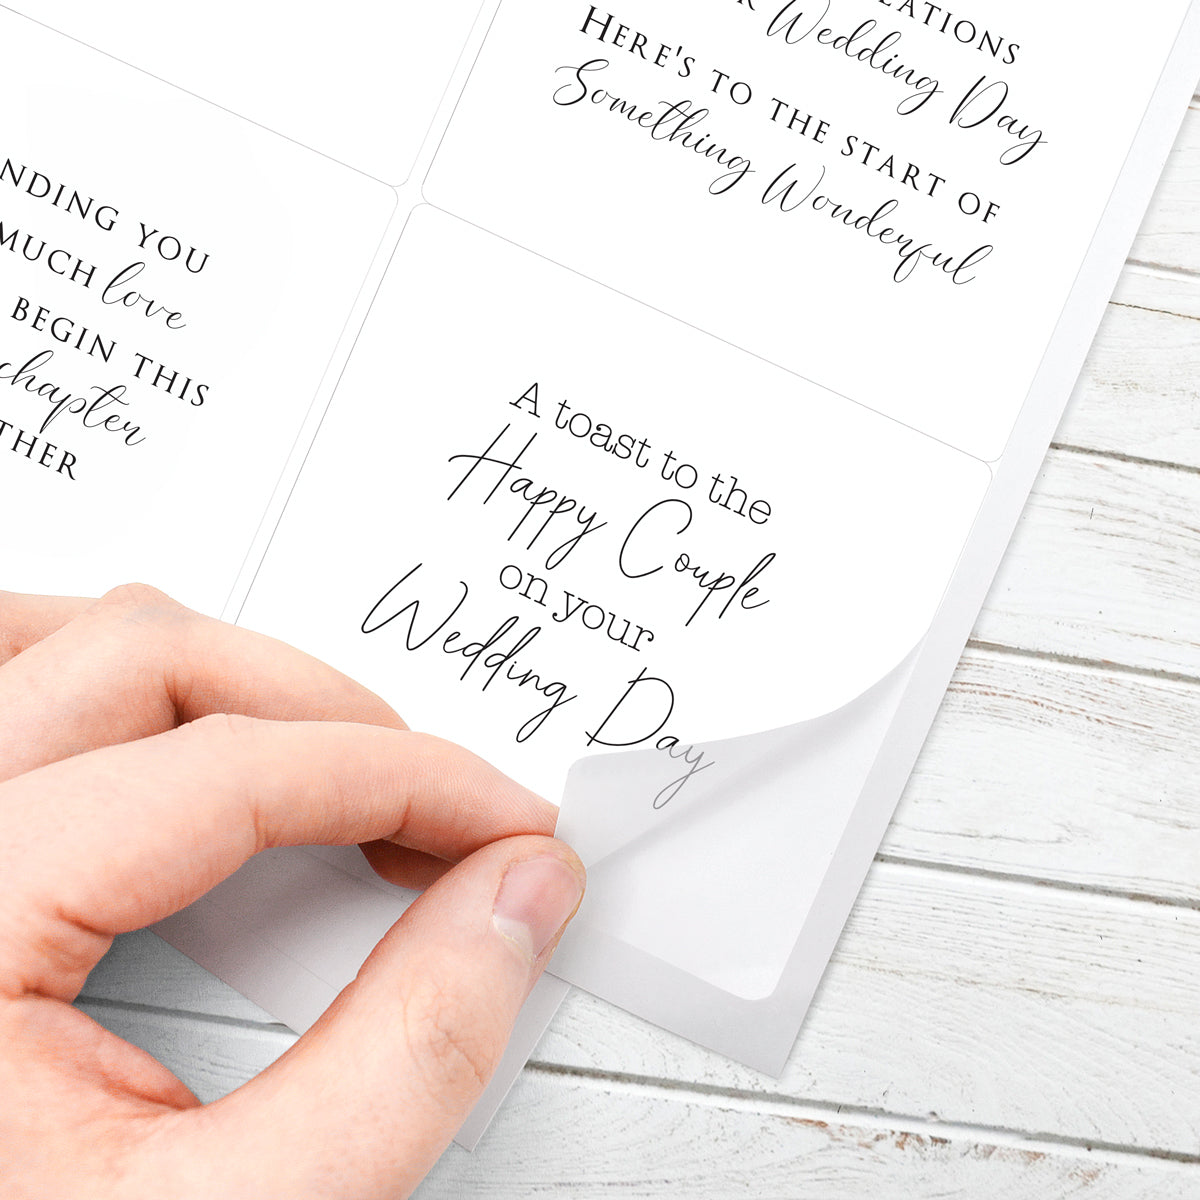 Wedding Day
HERE'S TO THE START OF
Something Wonderful
YOU
MUCH love
BEGIN THIS
chapter
A toast to the
Happy Couple
on your
Wedding Day